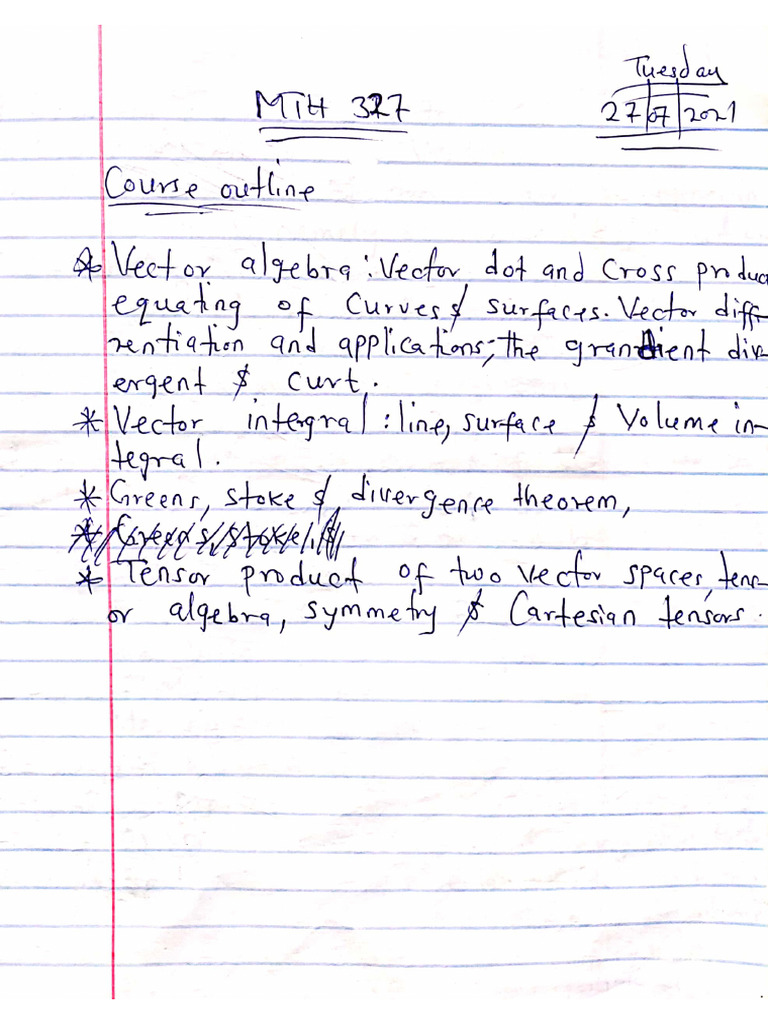 Tuesday
MTH 327
27/07/2021
Course outline
* Vector algebra: Vector dot and cross produc
equating of Curves & surfaces. Vector diff-
rentiation and applications; the grandient div-
ergent & curt.
* Vector intergral: line, surface & Volume in-
tegral.
* Greens, stoke & divergence theorem,
* Greens, stoke, &
* Tensor product of two vector spaces, tens-
or algebra, symmetry & Cartesian tensors.